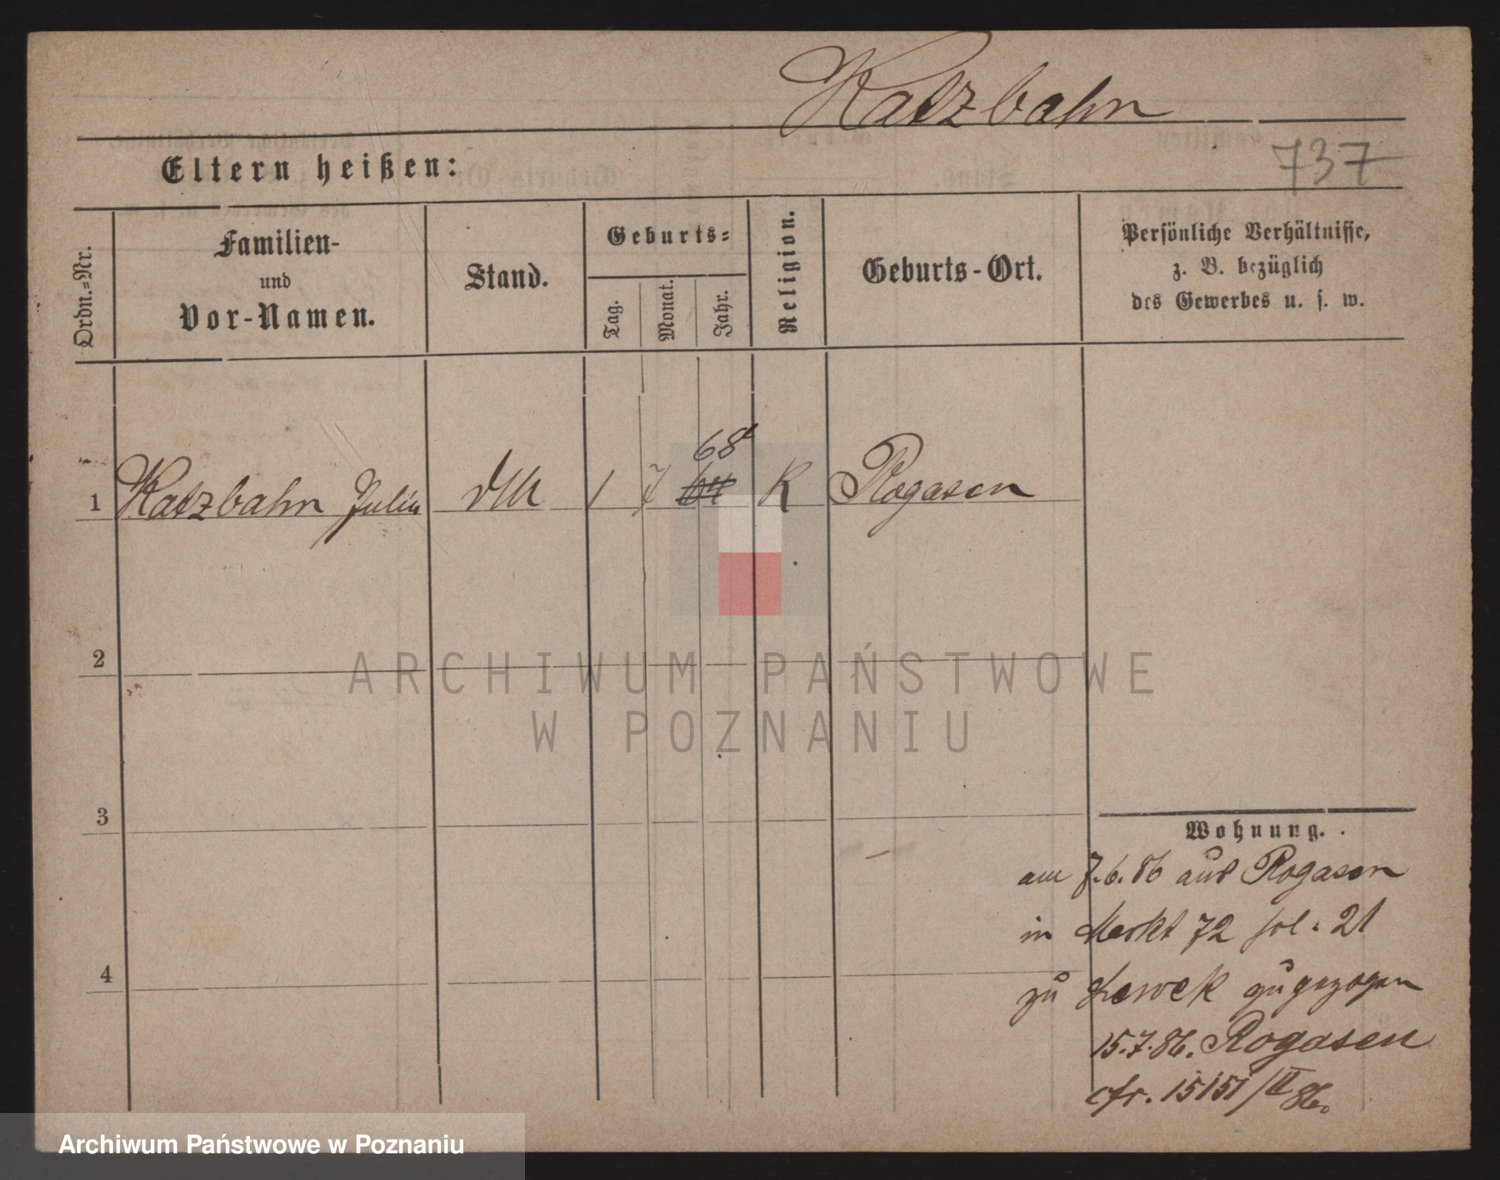 Katzbahn
Eltern heißen:
737
Ordn.=Nr.
Familien-
und
Vor-Namen.
Stand.
Geburts=
Tag.
Monat.
Jahr.
Religion.
Geburts-Ort.
Persönliche Verhältnisse,
z. B. bezüglich
des Gewerbes u. s. w.
68
1 Katzbahn Julia 1 7 64 K Rogasen
2
3
4
Wohnung.
am 7.6.86 aus Rogasen
in Markt 72 fol. 21
zu zugezogen
15.7.86. Rogasen
cfr. 15151/II 86.
ARCHIWUM PAŃSTWOWE
W POZNANIU
Archiwum Państwowe w Poznaniu